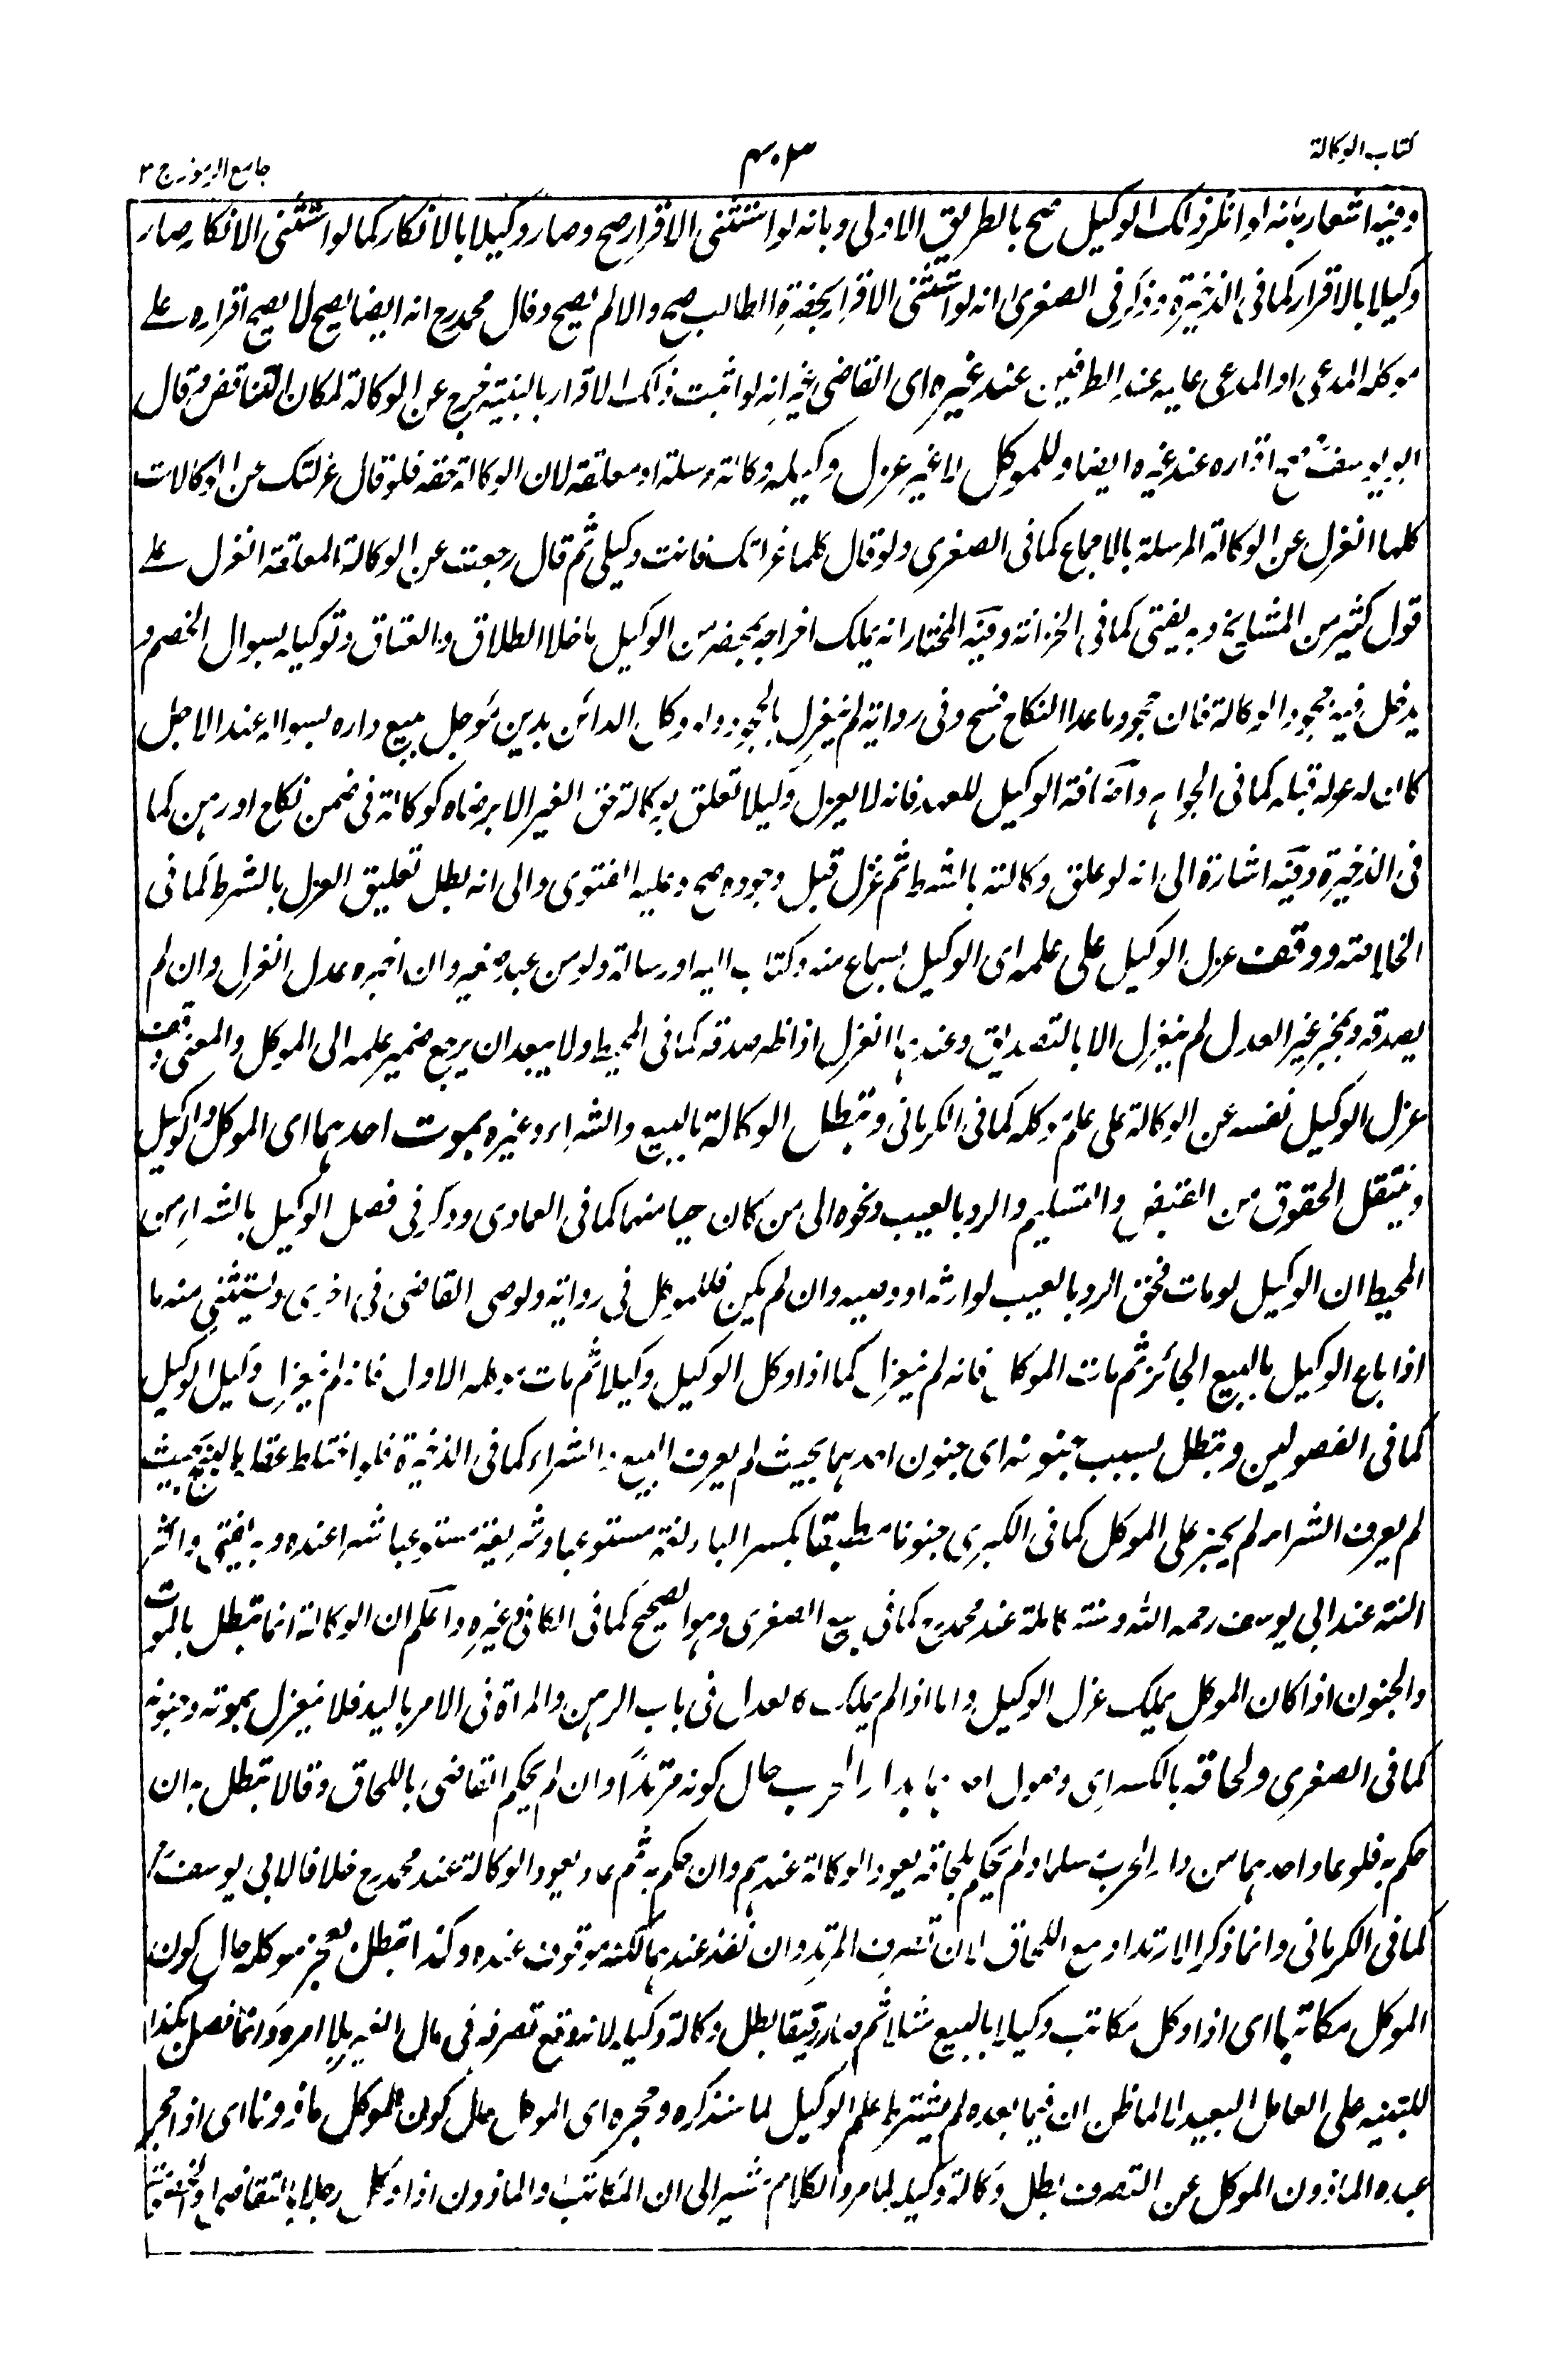 كتاب الوكالة
٤٠٣
جامع الرموز ج ٣
وفيه اشعار بانه لو انكر ذلك الوكيل صح بالطريق الاولى وبانه لو استثنى الاقرار صح وصار وكيلا بالانكار كما لو استثنى الانكار صار
وكيلا بالاقرار كما في الذخيرة وذكر في الصغرى انه لو استثنى الاقرار بحضرة الطالب صح والا لم يصح وقال محمد رح انه ايضا يصح لا يصح اقراره على
موكله المدعي او المدعى عليه عند الطرفين عند غيره اى القاضي غير انه لو اثبت ذلك الاقرار بالبينة خرج عن الوكالة لمكان التناقض وقال
ابو يوسف رح صح اقراره عند غيره ايضا وللموكل عزل وكيله وكالة مرسلة او معلقة لان الوكالة حقه فلو قال عزلتك عن الوكالات
كلها انعزل عن الوكالة المرسلة بالاجماع كما في الصغرى ولو قال كلما عزلتك فانت وكيلي ثم قال رجعت عن الوكالة المعلقة انعزل على
قول كثير من المشايخ وبه يفتى كما في الخزانة وفيه المختار انه يملك اخراجه بمحضر من الوكيل ما خلا الطلاق والعتاق وتوكيله بسوال الخصم و
يدخل فيه جحود الوكالة فان جحود ما عدا النكاح فسخ وفي رواية لم ينعزل بالجحود ولو وكل الدائن بدين مؤجل ببيع داره بسواله عند الاجل
كان له عزله قبله كما في الجواهر واضافة الوكيل للعهد فانه لا يعزل وكيلا تعلق بوكالته حق الغير الا برضاه كوكالة في ضمن نكاح او رهن كما
في الذخيرة وفيه اشارة الى انه لو علق وكالته بالشرط ثم عزل قبل وجوده صح وعليه الفتوى والى انه بطل تعليق العزل بالشرط كما في
الخلاصة ووقف عزل الوكيل على علمه اى الوكيل بسماع منه وكتاب اليه او رسالة ولو من عبد صغير وان اخبره عدل انعزل وان لم
يصدقه وبخبر غير العدل لم ينعزل الا بالتصديق وعندهما انعزل اذا ظهر صدقه كما في المحيط ولا يبعد ان يرجع ضمير علمه الى الموكل والمعنى وقف
عزل الوكيل نفسه عن الوكالة على علم موكله كما في الكرماني وتبطل الوكالة بالبيع والشراء وغيره بموت احدهما اى الموكل والوكيل
وينتقل الحقوق من القبض والتسليم والرد بالعيب ونحوه الى من كان حيا منهما كما في العمادى وذكر في فصل الوكيل بالشراء من
المحيط ان الوكيل لو مات فحق الرد بالعيب لوارثه او وصيه وان لم يكن فللموكل في رواية ولوصي القاضي في اخرى ويستثنى منه ما
اذا باع الوكيل بالبيع الجائز ثم مات الموكل فانه لم ينعزل كما اذا وكل الوكيل وكيلا ثم مات موكله الاول فانه لم ينعزل وكيل الوكيل
كما في الفصولين وتبطل بسبب جنونه اى جنون احدهما بحيث لم يعرف البيع والشراء كما في الذخيرة فلو اختلط عقله بالبنج بحيث
لم يعرف الشراء لم يجز على الموكل كما في الكبرى جنونا مطبقا بكسر الباء لغة مستوعبا وشريعة مستوعبا شهرا عنده وبه يفتى واكثر
السنة عند ابي يوسف رحمه الله وسنة كاملة عند محمد رح كما في بيع الصغرى وهو الصحيح كما في الكافي وغيره واعلم ان الوكالة انما تبطل بالموت
والجنون اذا كان الموكل يملك عزل الوكيل واما اذا لم يملك كالعدل في باب الرهن والمراة في الامر باليد فلا ينعزل بموته وجنونه
كما في الصغرى ولحاقه بالكسر اى وصول احدهما بدار الحرب حال كونه مرتدا وان لم يحكم القاضي باللحاق وقالا تبطل به ان
حكم به فلو عاد احدهما من دار الحرب مسلما ولم يحكم بلحاقه يعود الوكالة عندهم وان حكم به ثم عاد يعود الوكالة عند محمد رح خلافا لابي يوسف رح
كما في الكرماني وانما ذكر الارتداد مع اللحاق لان تصرف المرتد وان نفذ عندهما لكنه موقوف عنده وكذا تبطل بعجز موكله حال كون
الموكل مكاتبا اى اذا وكل مكاتب وكيلا بالبيع مثلا ثم صار رقيقا بطل وكالة وكيله لانه وقع تصرفه في مال الغير بلا امره وانما فصل بكذا
للتنبيه على العامل البعيد لا لما ظن ان فيما بعده لم يشترط علم الوكيل لما سنذكره وحجره اى الموكل حال كون الموكل ماذونا اى اذا حجر
عبده الماذون الموكل عن التصرف بطل وكالة وكيله لما مر والكلام مشير الى ان المكاتب والماذون اذا وكل رجلا بالتقاضي او الخصومة